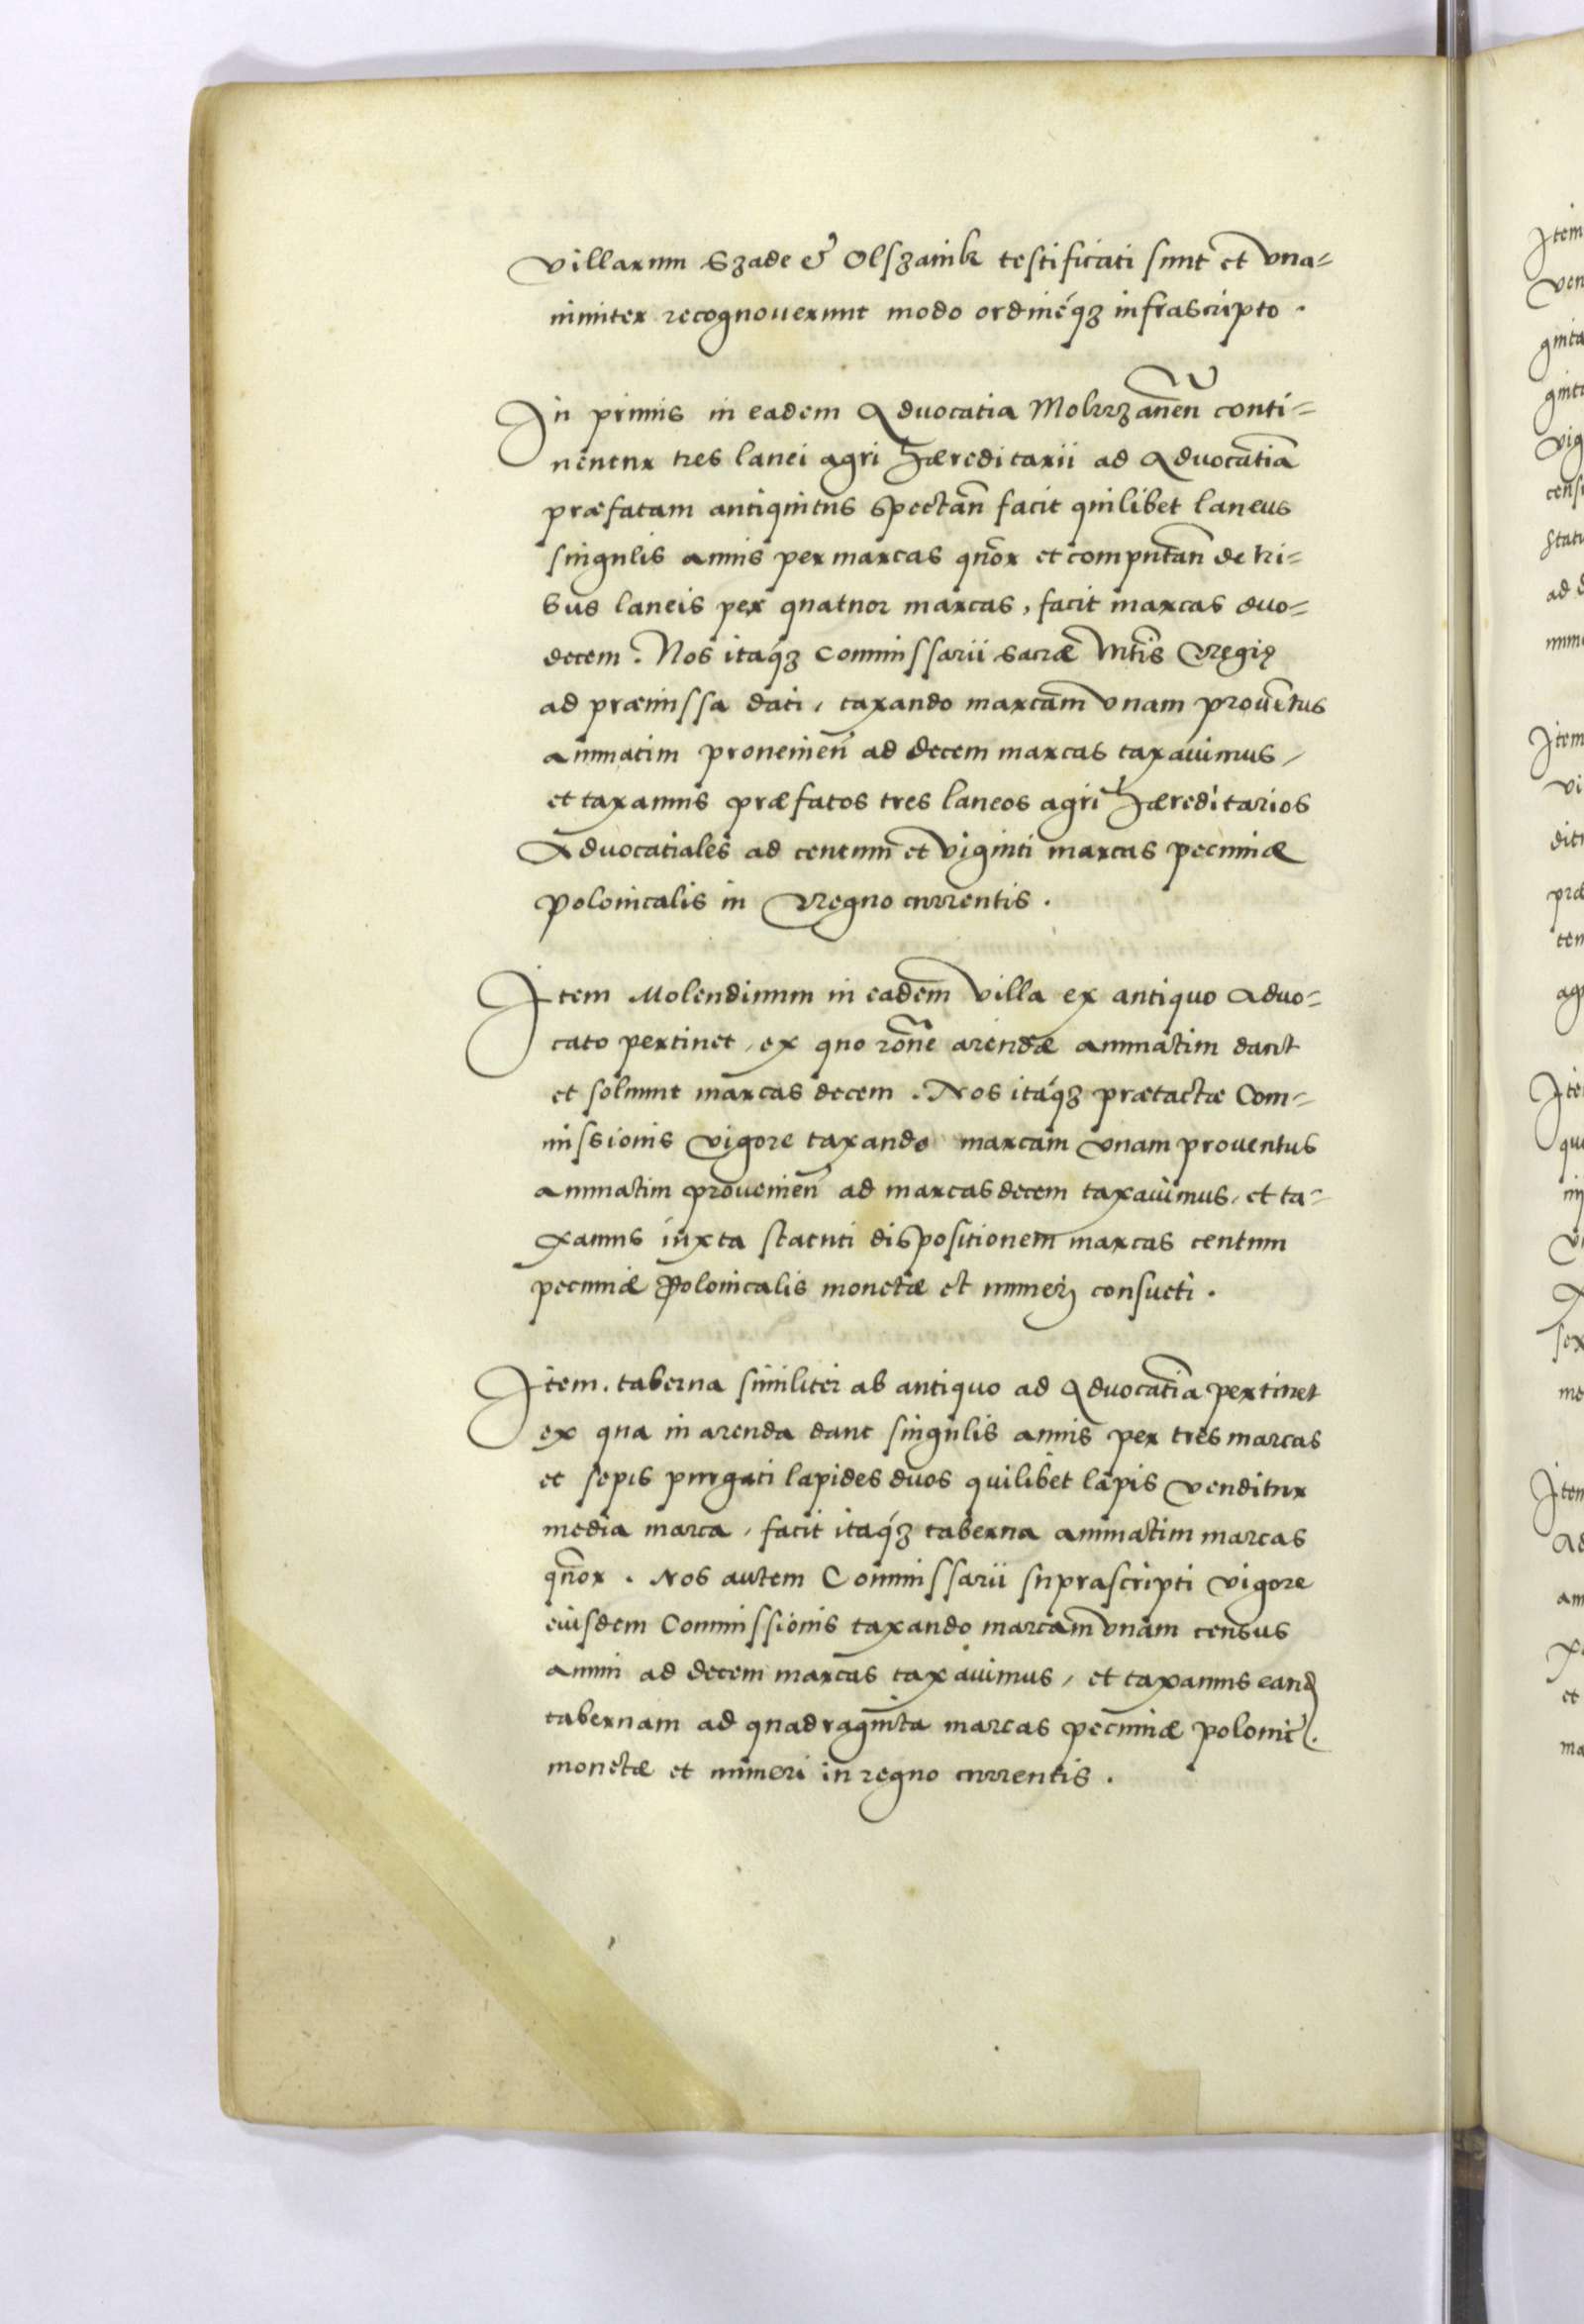 villarum Szade & Olszanik testificati sunt et vna-
nimiter recognouerunt modo ordineq́ʒ infrascripto.
In primis in eadem Aduocatia Mokrzanen̄ conti-
nentur tres lanei agri hæreditarii ad Aduocatiā
præfatam antiquitus spectan̄ facit quilibet laneus
singulis annis per marcas qn̄or et computan̄ de tri-
bus laneis per quatuor marcas, facit marcas duo-
decem. Nos itaq́ʒ Commissarii sacræ Mt̄is Regię
ad præmissa dati, taxando marcam vnam prouētus
annuatim prouenien̄ ad decem marcas taxauimus,
et taxamus præfatos tres laneos agri hæreditarios
Aduocatiales ad centum et viginti marcas pecuniæ
polonicalis in Regno currentis.
Item Molendinum in eadem villa ex antiquo Aduo-
cato pertinet, ex quo rōne arendæ annuatim dant
et soluunt marcas decem. Nos itaq́ʒ prætactæ Com-
missionis vigore taxando marcam vnam prouentus
annuatim prouenien̄ ad marcas decem taxauimus, et ta-
xamus iuxta statuti dispositionem marcas centum
pecuniæ Polonicalis monetæ et numeri consueti.
Item taberna similiter ab antiquo ad Aduocatiā pertinet
ex qua in arenda dant singulis annis per tres marcas
et sepis purgati lapides duos quilibet lapis venditur
media marca, facit itaq́ʒ taberna annuatim marcas
qn̄or. Nos autem Commissarii suprascripti vigore
eiusdem Commissionis taxando marcam vnam census
annui ad decem marcas taxauimus, et taxamus eand
tabernam ad quadraginta marcas pecuniæ polonic.
monetæ et numeri in regno currentis.